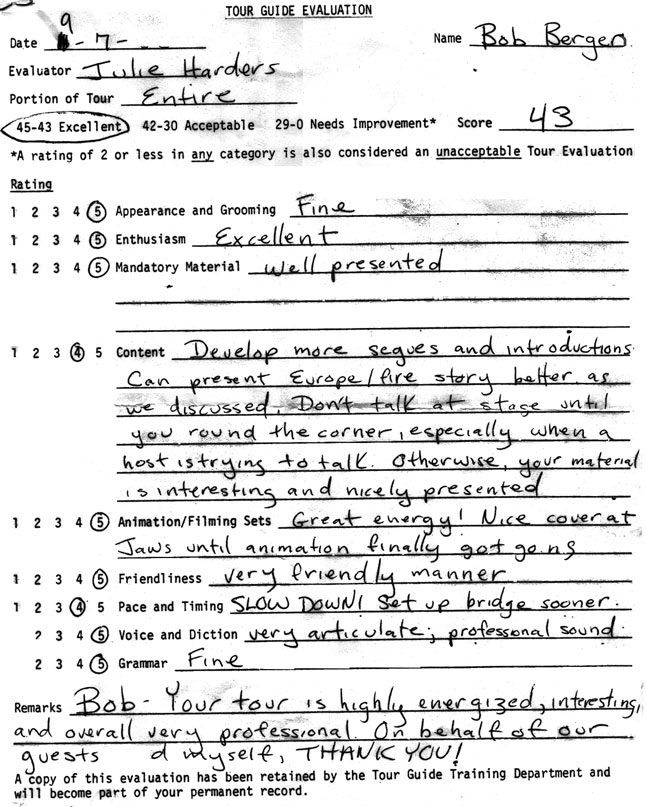 TOUR GUIDE EVALUATION
Date 9-7- Name Bob Bergen
Evaluator Julie Harders
Portion of Tour Entire
45-43 Excellent 42-30 Acceptable 29-0 Needs Improvement* Score 43
*A rating of 2 or less in any category is also considered an unacceptable Tour Evaluation
Rating
1 2 3 4 5 Appearance and Grooming Fine
1 2 3 4 5 Enthusiasm Excellent
1 2 3 4 5 Mandatory Material well presented
1 2 3 4 5 Content Develop more segues and introductions.
Can present Europe/fire story better as
we discussed. Don't talk at stage until
you round the corner, especially when a
host is trying to talk. Otherwise, your material
is interesting and nicely presented
1 2 3 4 5 Animation/Filming Sets Great energy! Nice cover at
Jaws until animation finally got going
1 2 3 4 5 Friendliness very friendly manner
1 2 3 4 5 Pace and Timing SLOW DOWN! Set up bridge sooner.
2 3 4 5 Voice and Diction very articulate; professional sound.
2 3 4 5 Grammar Fine
Remarks Bob - Your tour is highly energized, interesting,
and overall very professional. On behalf of our
guests d myself, THANK YOU!
A copy of this evaluation has been retained by the Tour Guide Training Department and
will become part of your permanent record.